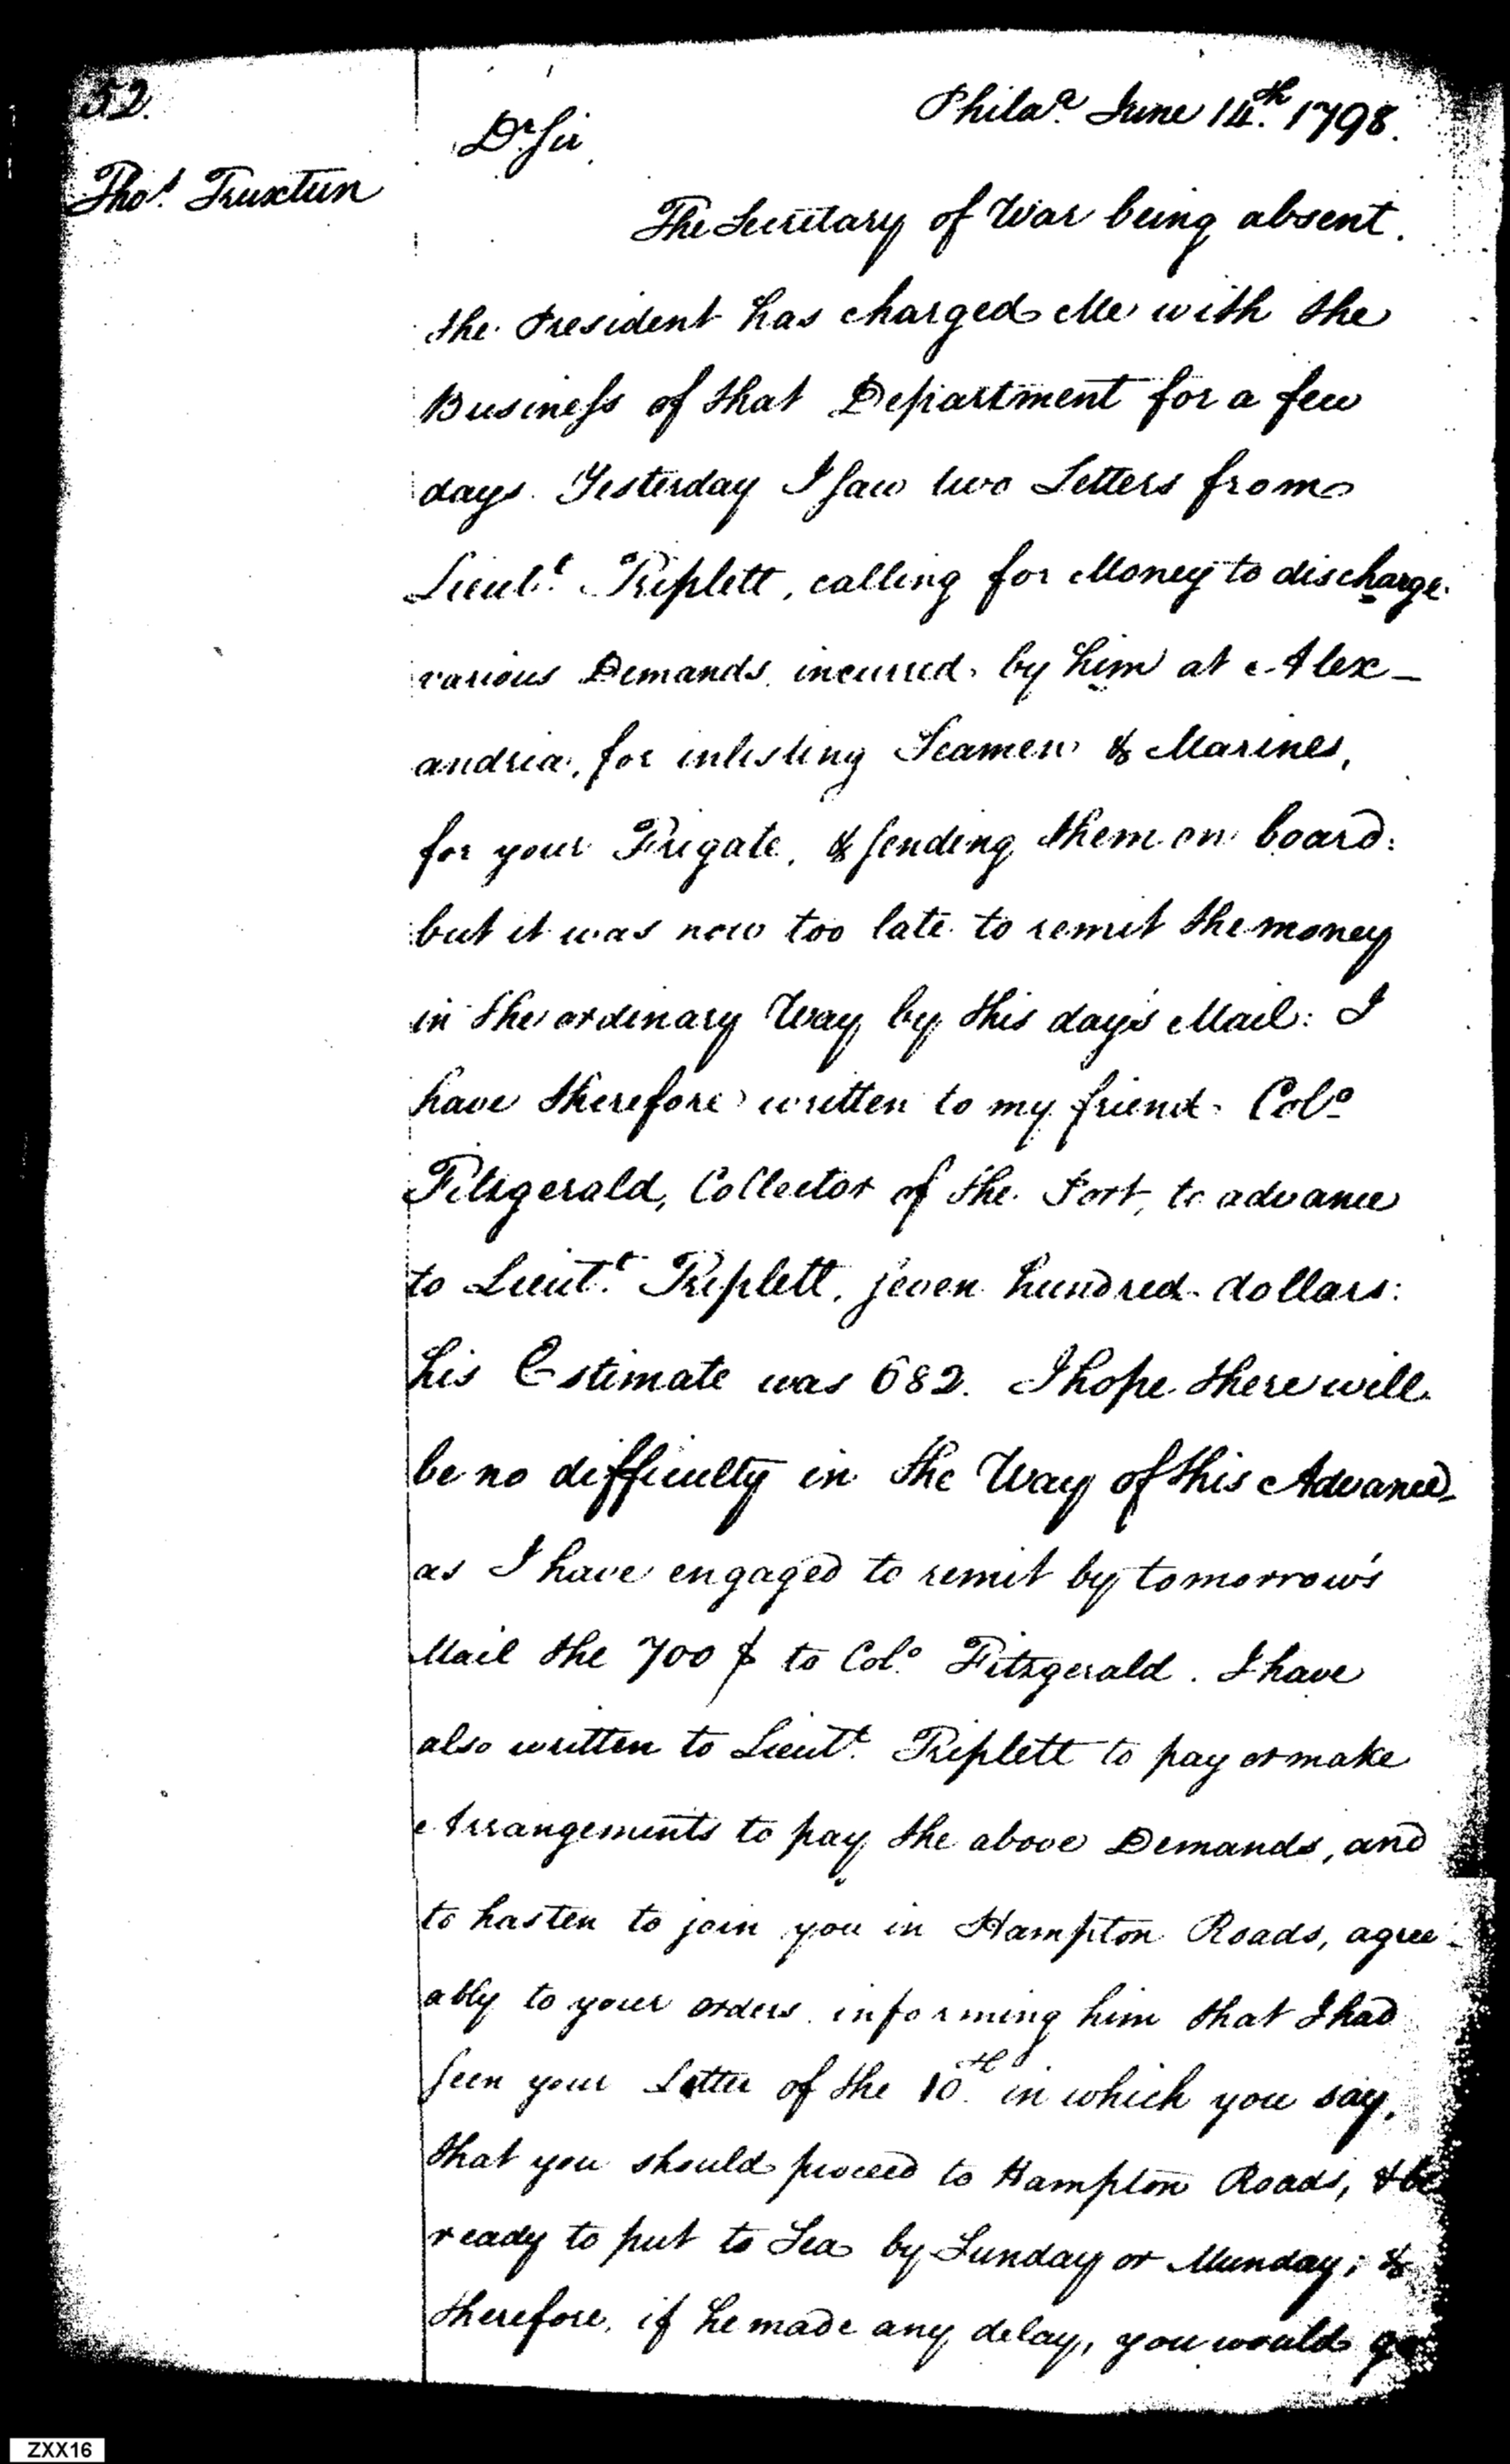 52.
Philaᵃ June 14.th 1798.
Dr Sir
Thoˢ. Truxtun
The Secretary of War being absent.
the President has charged Me with the
Business of that Department for a few
days. Yesterday I saw two Letters from
Lieut.t Triplett, calling for Money to discharge
various Demands incurred by him at Alex-
andria, for inlisting Seamen & Marines,
for your Frigate, & sending them on board:
but it was now too late to remit the money
in the ordinary Way by this day's Mail: I
have therefore written to my friend Colo
Fitzgerald, Collector of the Port, to advance
to Lieut.t Triplett, seven hundred dollars:
his Estimate was 682. I hope there will
be no difficulty in the Way of this Advance
as I have engaged to remit by tomorrow's
Mail the 700 $ to Col.o Fitzgerald. I have
also written to Lieut.t Triplett to pay or make
Arrangements to pay the above Demands, and
to hasten to join you in Hampton Roads, agree-
ably to your orders informing him that I had
seen your Letter of the 10.th in which you say,
that you should proceed to Hampton Roads, & be
ready to put to Sea by Sunday or Munday; &
therefore, if he made any delay, you would go
ZXX16